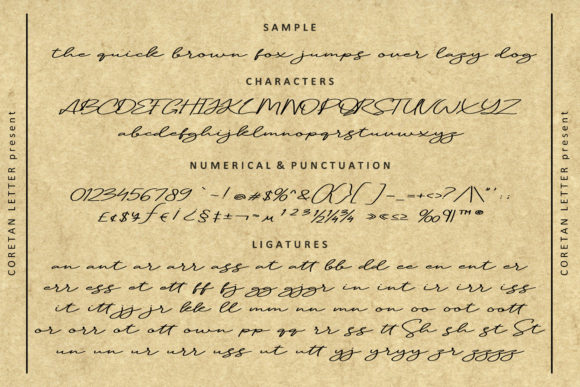 SAMPLE
the quick brown fox jumps over lazy dog
CHARACTERS
ABCDEFGHIJKLMNOPQRSTUVWXYZ
abcdefghijklmnopqrstuvwxyz
NUMERICAL & PUNCTUATION
0123456789
LIGATURES
an ant ar arr ass at att bb dd ee en ent er
err ess et ett ff fj gg ggr in int ir irr iss
it itt jj jr kk ll mm nn mn on oo oot oott
or orr ot ott own pp qq rr ss tt Sh sh st St
un un ur urr uss ut utt yj gryy zr zzzz
CORETAN LETTER present
CORETAN LETTER present